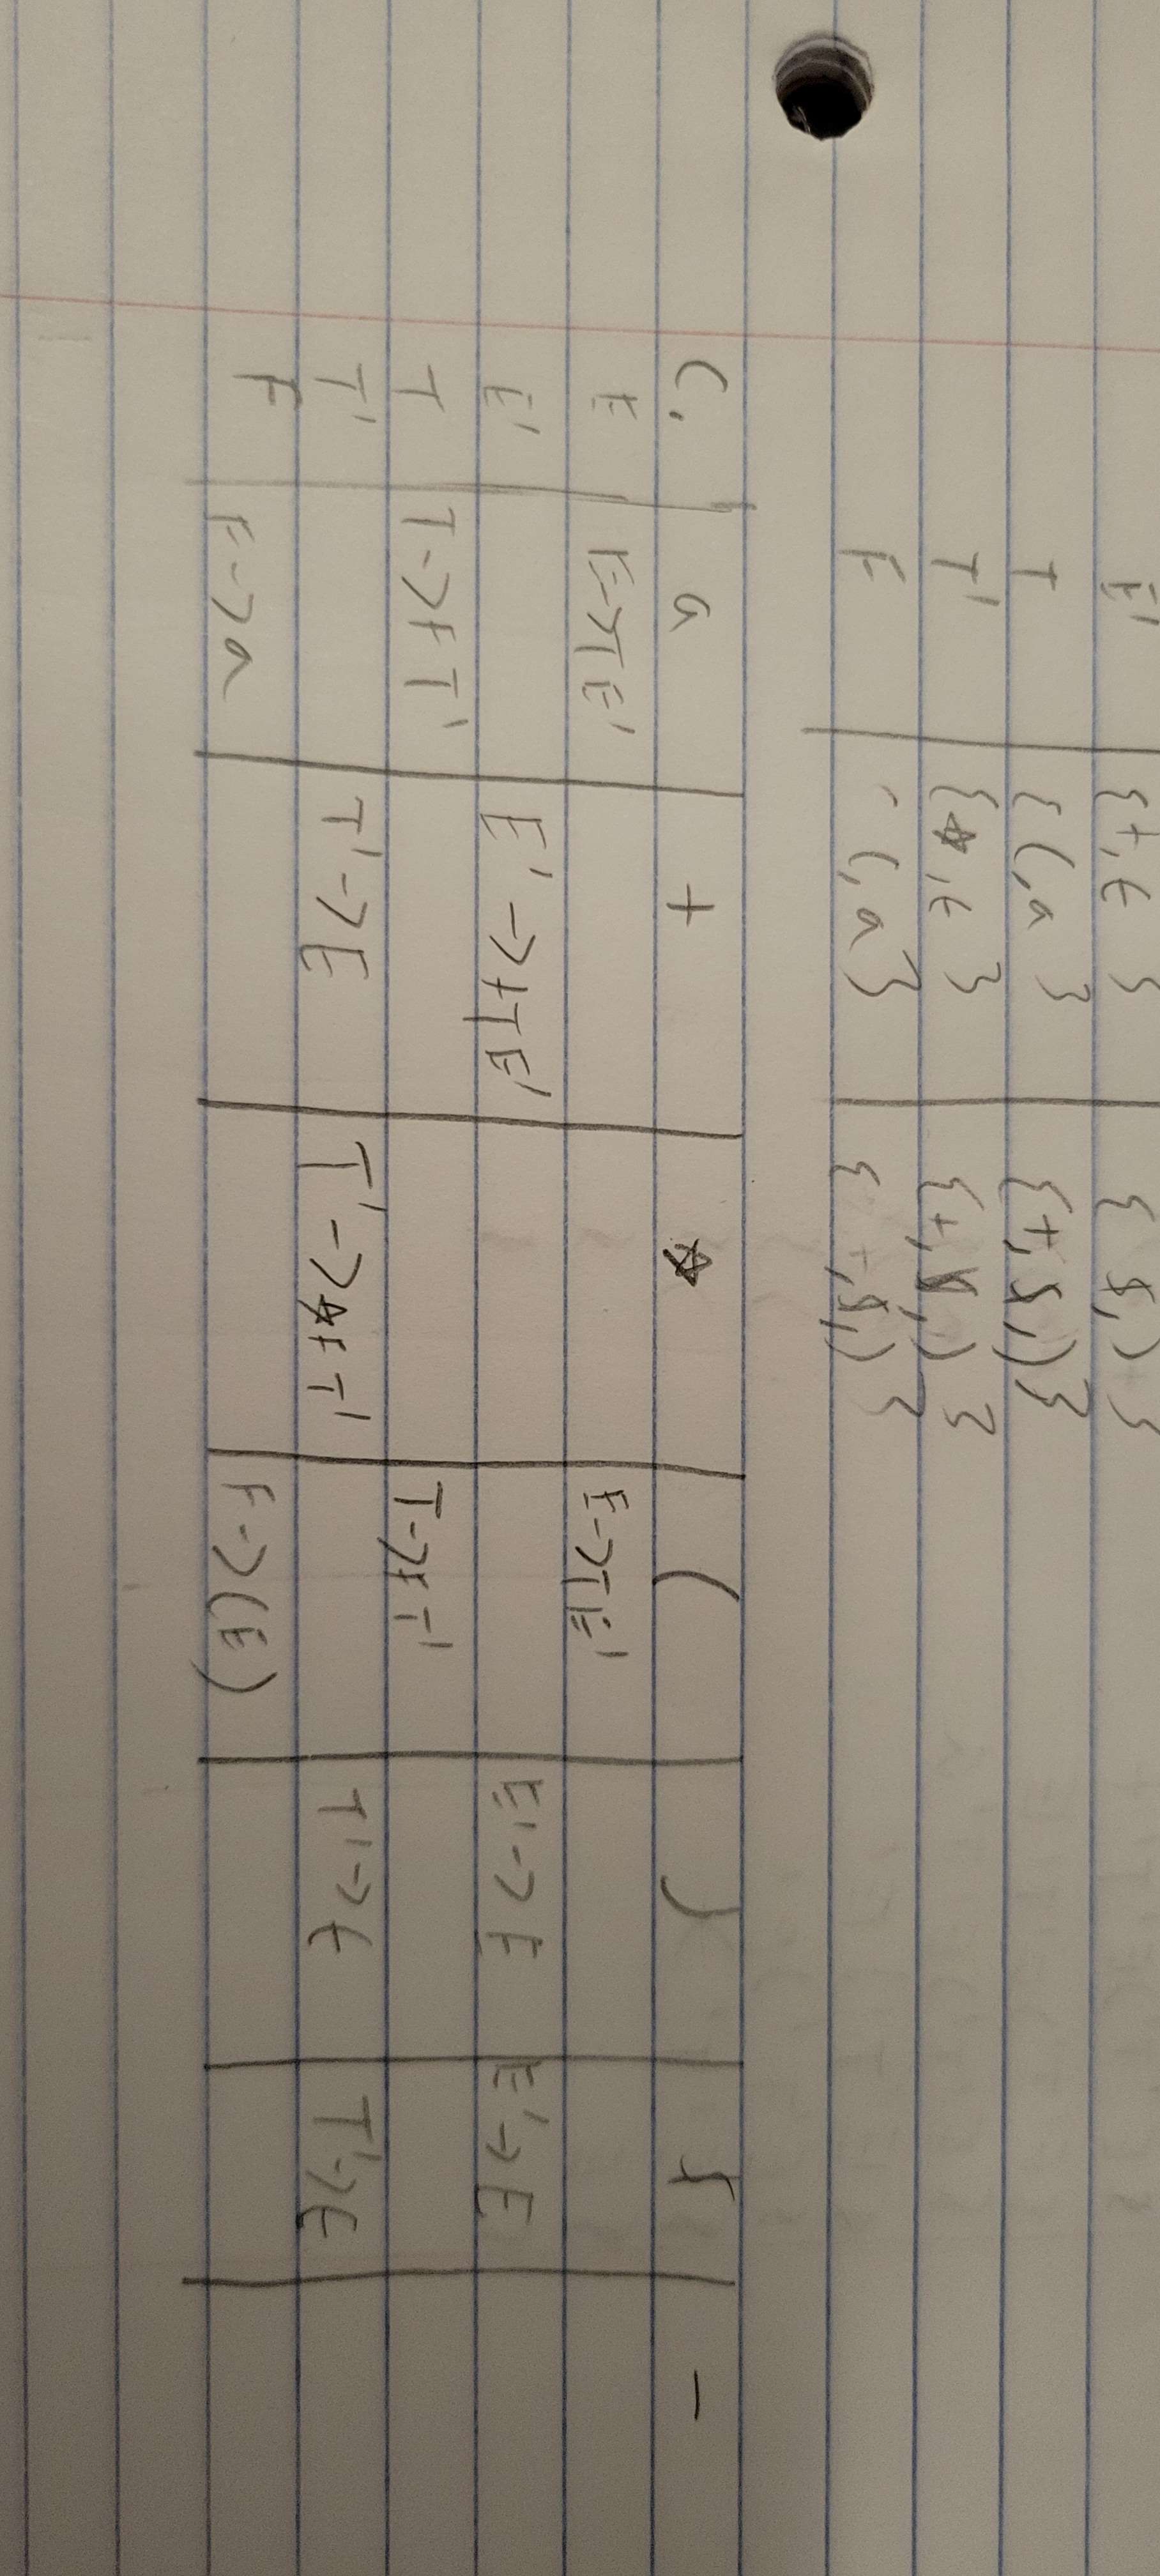 E' {+, ϵ } { $, ) }
T { (, a } {+, $, ) }
T' {☆, ϵ } {+, $, ) }
F (, a } { +, $, ) }
C. a + ☆ ( ) $ -
E E->TE' E->TE'
E' E'->+TE' E'->E E'->E
T T->FT' T->FT'
T' T'->E T'->☆FT' T'->ϵ T'->ϵ
F F->a F->(E)